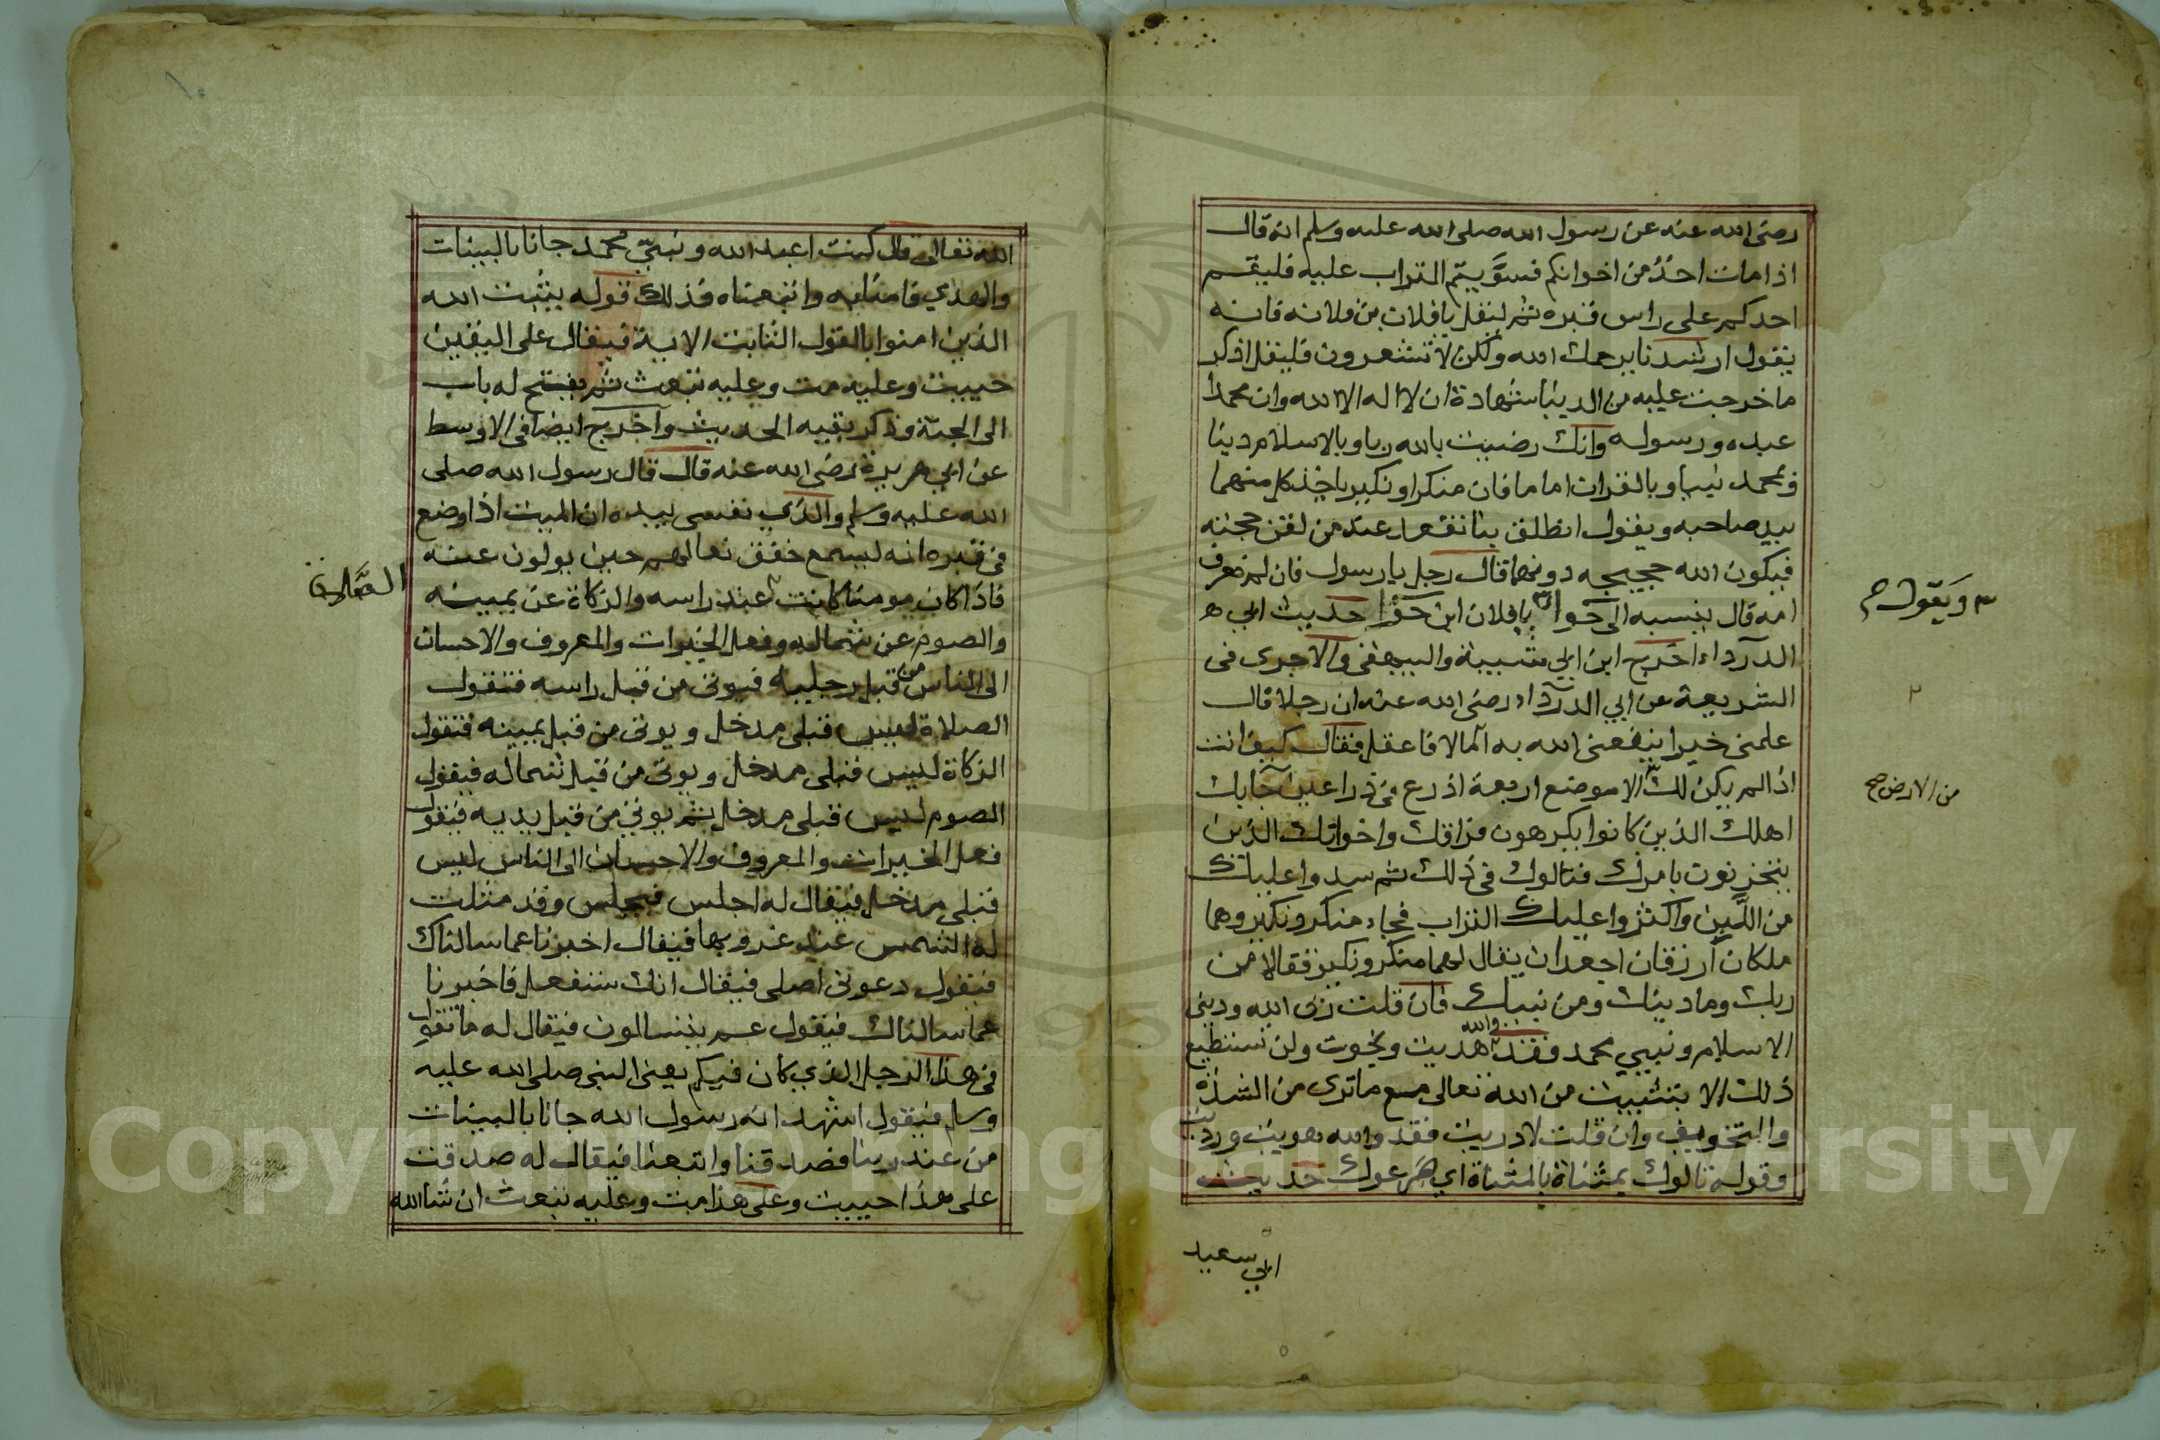 رضي الله عنه عن رسول الله صلى الله عليه وسلم انه قال
اذا مات احدٌ من اخوانكم فسوَّيتم التراب عليه فليقم
احدكم على راس قبره ثم ليقل يا فلان بن فلانه فانه
يقول ارشدنا يرحمك الله ولكن لا تشعرون فليقل اذكر
ما خرجت عليه من الدنيا شهادة ان لا اله الا الله وان محمدا
عبده ورسوله وانك رضيت بالله ربا وبالاسلام دينا
وبمحمد نبيا وبالقران اماما فان منكرا ونكيرا ياخذ كل منهما
بيد صاحبه ويقول انطلق بنا نقعد عند من لقن حجته
فيكون الله حجيجه دونهما قال رجل يا رسول فان لم نعرف
امه قال ينسبه الى حوا يا فلان ابن حوا حديث ابي
الدرداء اخرج ابن ابي شيبة والبيهقي والاجرى في
الشريعة عن ابي الدرداء رضي الله عنه ان رجلا قال
علمني خيرا ينفعني الله به اما لا فاعقل فقال كيف انت
اذا لم يكن لك الا موضع اربعة اذرع في ذراعين جابك
اهلك الذين كانوا يكرهون فراقك واخوانك الذين
يتحزنون بامرك فتالوك في ذلك ثم سدوا عليك
من اللَّبِن واكثروا عليك التراب فجاء منكر ونكير وهما
ملكان ازرقان اجعدان يقال لهما منكر ونكير فقالا من
ربك وما دينك ومن نبيك فان قلت ربي الله وديني
الاسلام ونبيي محمد فقد والله هديت ونجوت ولن تستطيع
ذلك الا بتثبيت من الله تعالى مع ما ترى من الشدة
والتخويف وان قلت لا دريت فقد والله هويت ورديت
وقوله تالوك بمثناة بالمثناة اي صرعوك حديث
ابي سعيد
ويقول
من الارض صح
الله تعالى قال كنت اعبد الله ونبيّي محمد جانا بالبينات
والهدي فامنا به واتبعناه فذلك قوله يثبت الله
الذين امنوا بالقول الثابت الاية فيقال على اليقين
حييت وعليه مت وعليه تبعث ثم يفتح له باب
الى الجنة وذكر بقيه الحديث واخرج ايضا في الاوسط
عن ابي هريرة رضي الله عنه قال قال رسول الله صلى
الله عليه وسلم والذي نفسي بيده ان الميت اذا وضع
في قبره انه ليسمع خفق نعالهم حين يولون عنه
فاذا كان مومنا كانت عند راسه والزكاة عن يمينه
والصوم عن شماله وفعل الخيرات والمعروف والاحسان
الى الناس من قبل رجليه فيوتى من قبل راسه فتقول
الصلاة ليس قبلي مدخل ويوتى من قبل يمينه فتقول
الزكاة ليس قبلي مدخل ويوتى من قبل شماله فيقول
الصوم ليس قبلي مدخل ثم يوتى من قبل يديه فيقول
فعل الخيرات والمعروف والاحسان الى الناس ليس
قبلي مدخل فيقال له اجلس فيجلس وقد مثلت
له الشمس عند غروبها فيقال اخبرنا عما سالناك
فيقول دعوني اصلي فيقال انك ستفعل فاخبرنا
عما سالناك فيقول عم يتسالون فيقال له ما تقول
في هذا الرجل الذي كان فيكم يعني النبي صلى الله عليه
وسلم فيقول اشهد انه رسول الله جانا بالبينات
من عند ربنا فصدقنا واتبعنا فيقال له صدقت
على هذا حييت وعلى هذا مت وعليه تبعث ان شا الله
الصلاة
١٠
Copyright © King Saud University